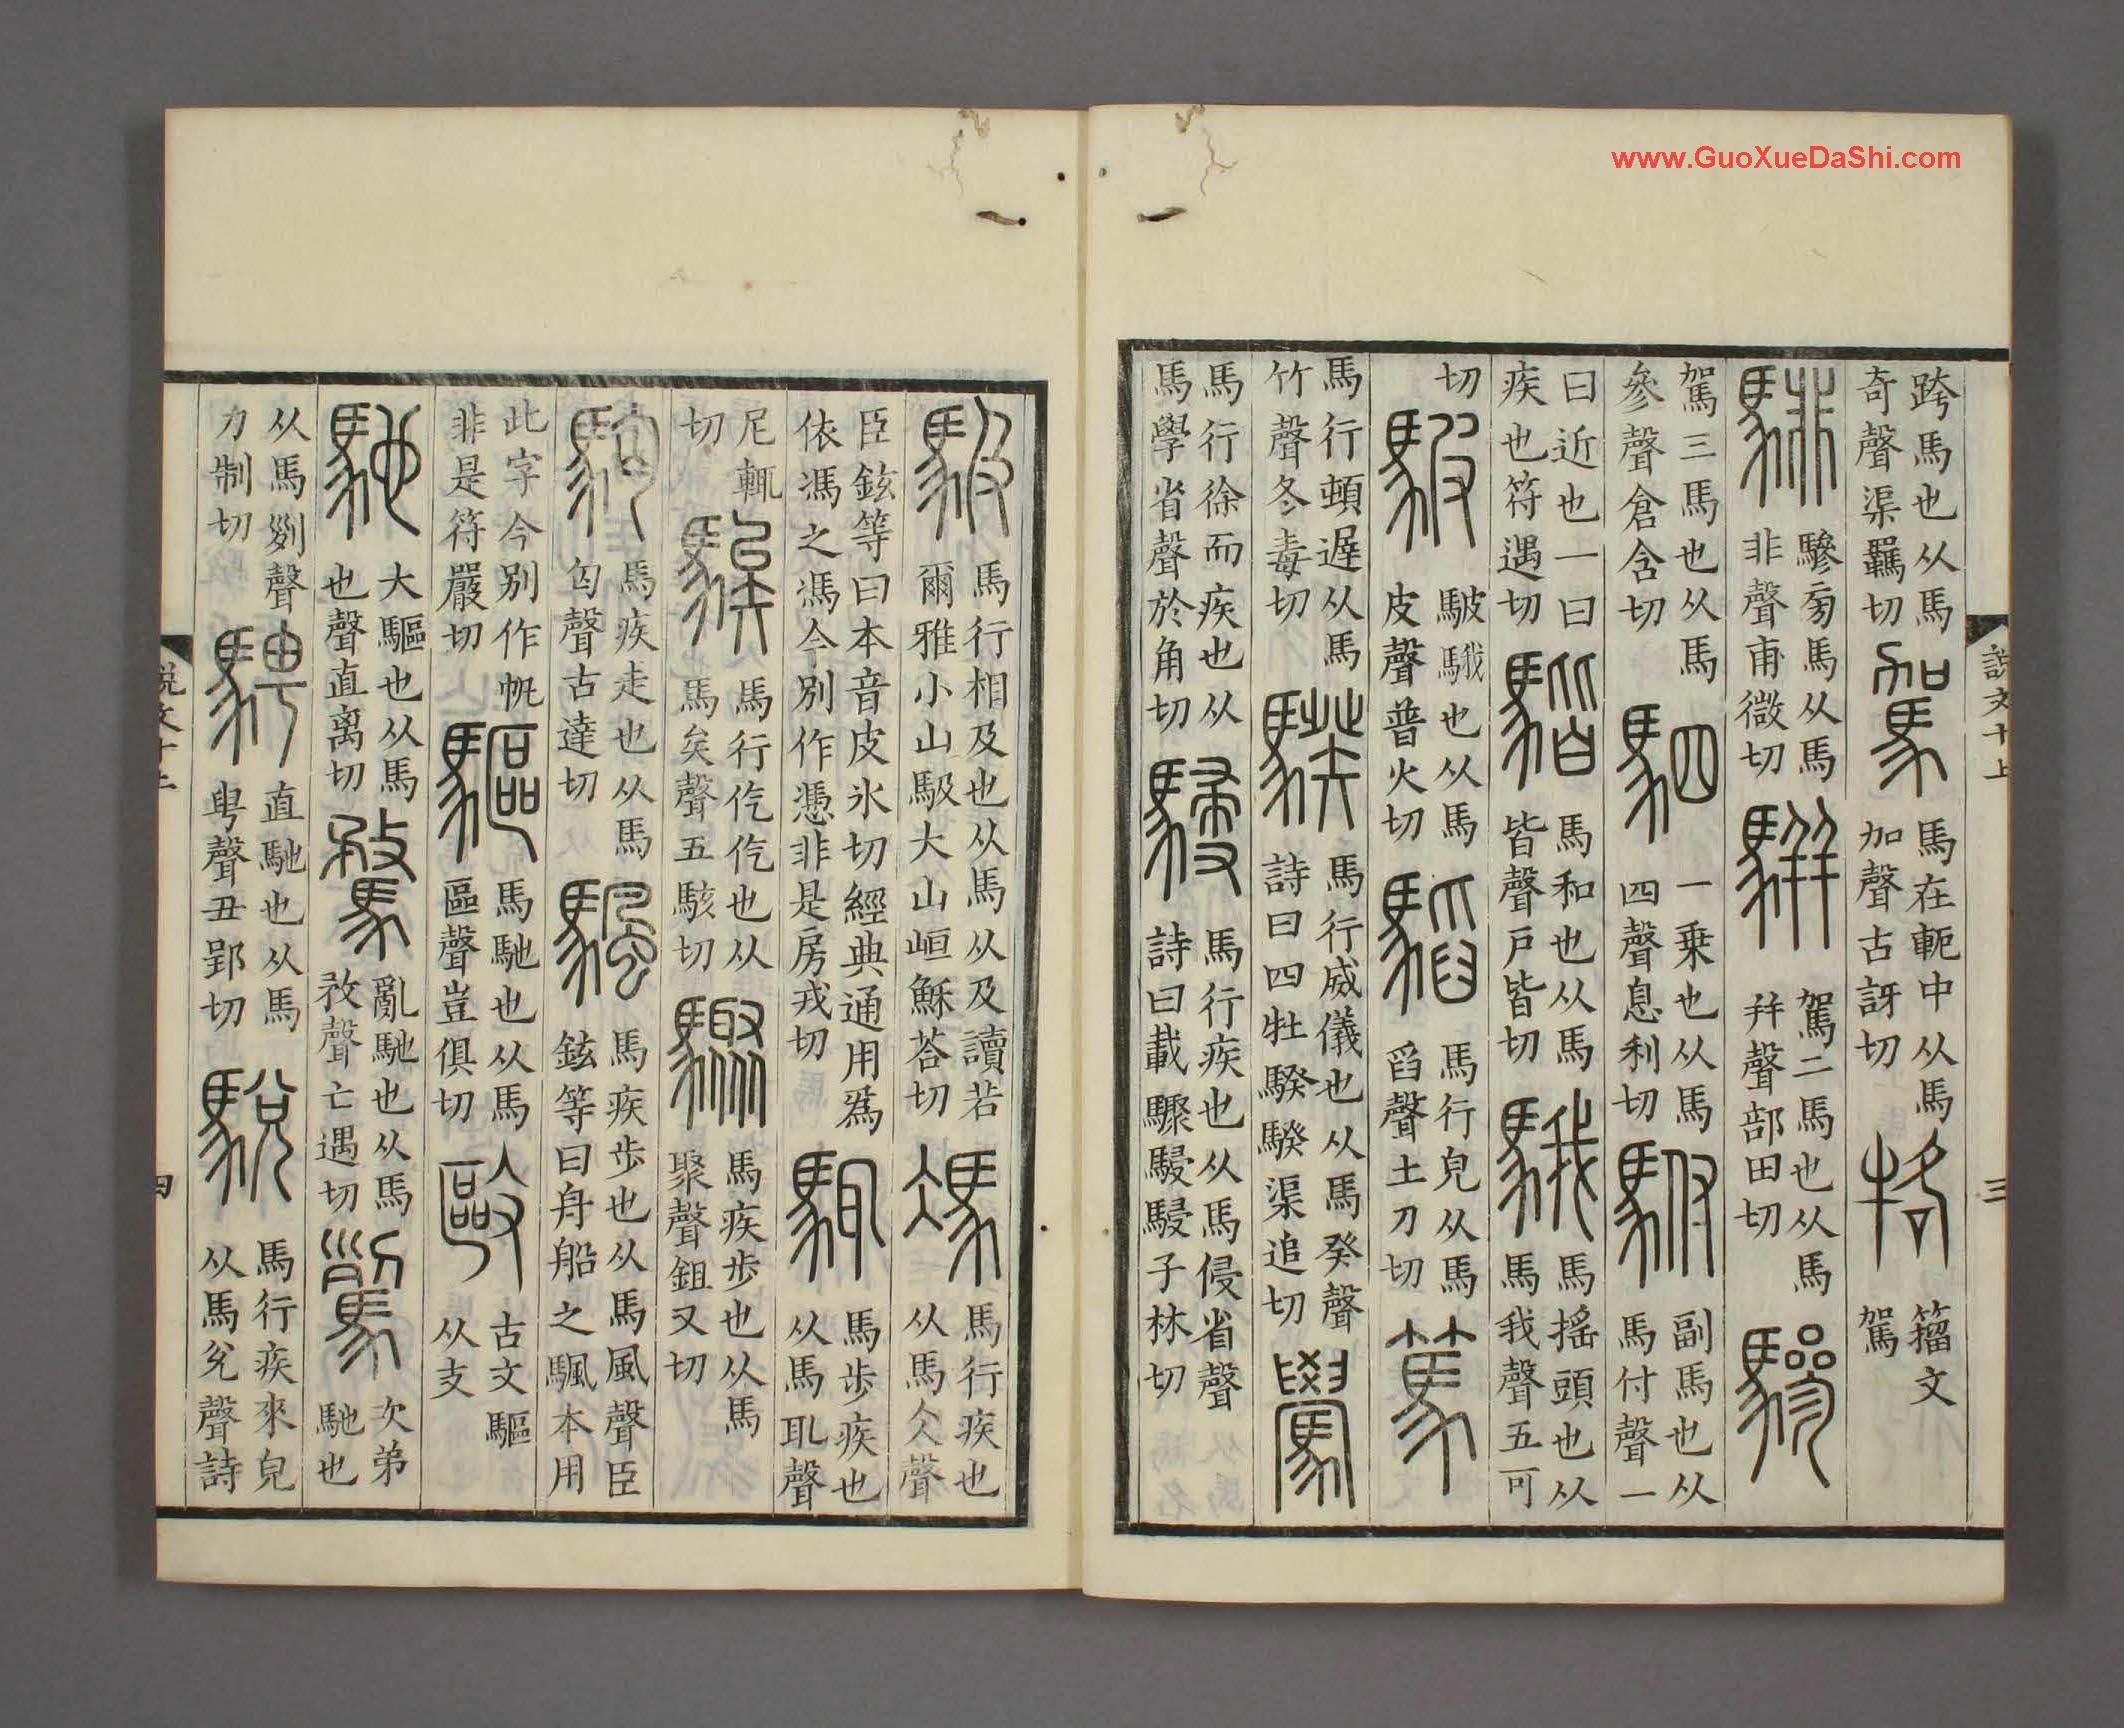 跨馬也从馬奇聲渠羈切 駕 馬在軛中从馬加聲古訝切 𤙑 籒文駕
騑 驂㫄馬从馬非聲甫微切 駢 駕二馬也从馬幷聲部田切 驂
駕三馬也从馬參聲倉含切 駟 一乗也从馬四聲息利切 駙 副馬也从馬付聲一
曰近也一曰疾也符遇切 馬和也从馬皆聲戶皆切 騀 馬搖頭也从馬我聲五可
切 駊 駊騀也从馬皮聲普火切 馬行皃从馬舀聲土刀切 篤
馬行頓遲从馬竹聲冬毒切 騤 馬行威儀也从馬癸聲詩曰四牡騤騤渠追切
馬行徐而疾也从馬學省聲於角切 駸 馬行疾也从馬侵省聲詩曰載驟駸駸子林切
馺 馬行相及也从馬从及讀若爾雅小山馺大山峘穌荅切 馮 馬行疾也从馬仌聲
臣鉉等曰本音皮冰切經典通用爲依馮之馮今別作憑非是房戎切 馬步疾也从馬耴聲
尼輒切 騃 馬行仡仡也从馬矣聲五駭切 驟 馬疾步也从馬聚聲鉏又切
馬疾走也从馬匃聲古達切 颿 馬疾步也从馬風聲臣鉉等曰舟船之颿本用
此字今別作帆非是符嚴切 驅 馬馳也从馬區聲豈俱切 敺 古文驅从攴
馳 大驅也从馬也聲直离切 騖 亂馳也从馬敄聲亡遇切 次弟馳也
从馬𠛱聲力制切 騁 直馳也从馬甹聲丑郢切 駾 馬行疾來皃从馬兌聲詩
說文十上
三
說文十上
四
www.GuoXueDaShi.com